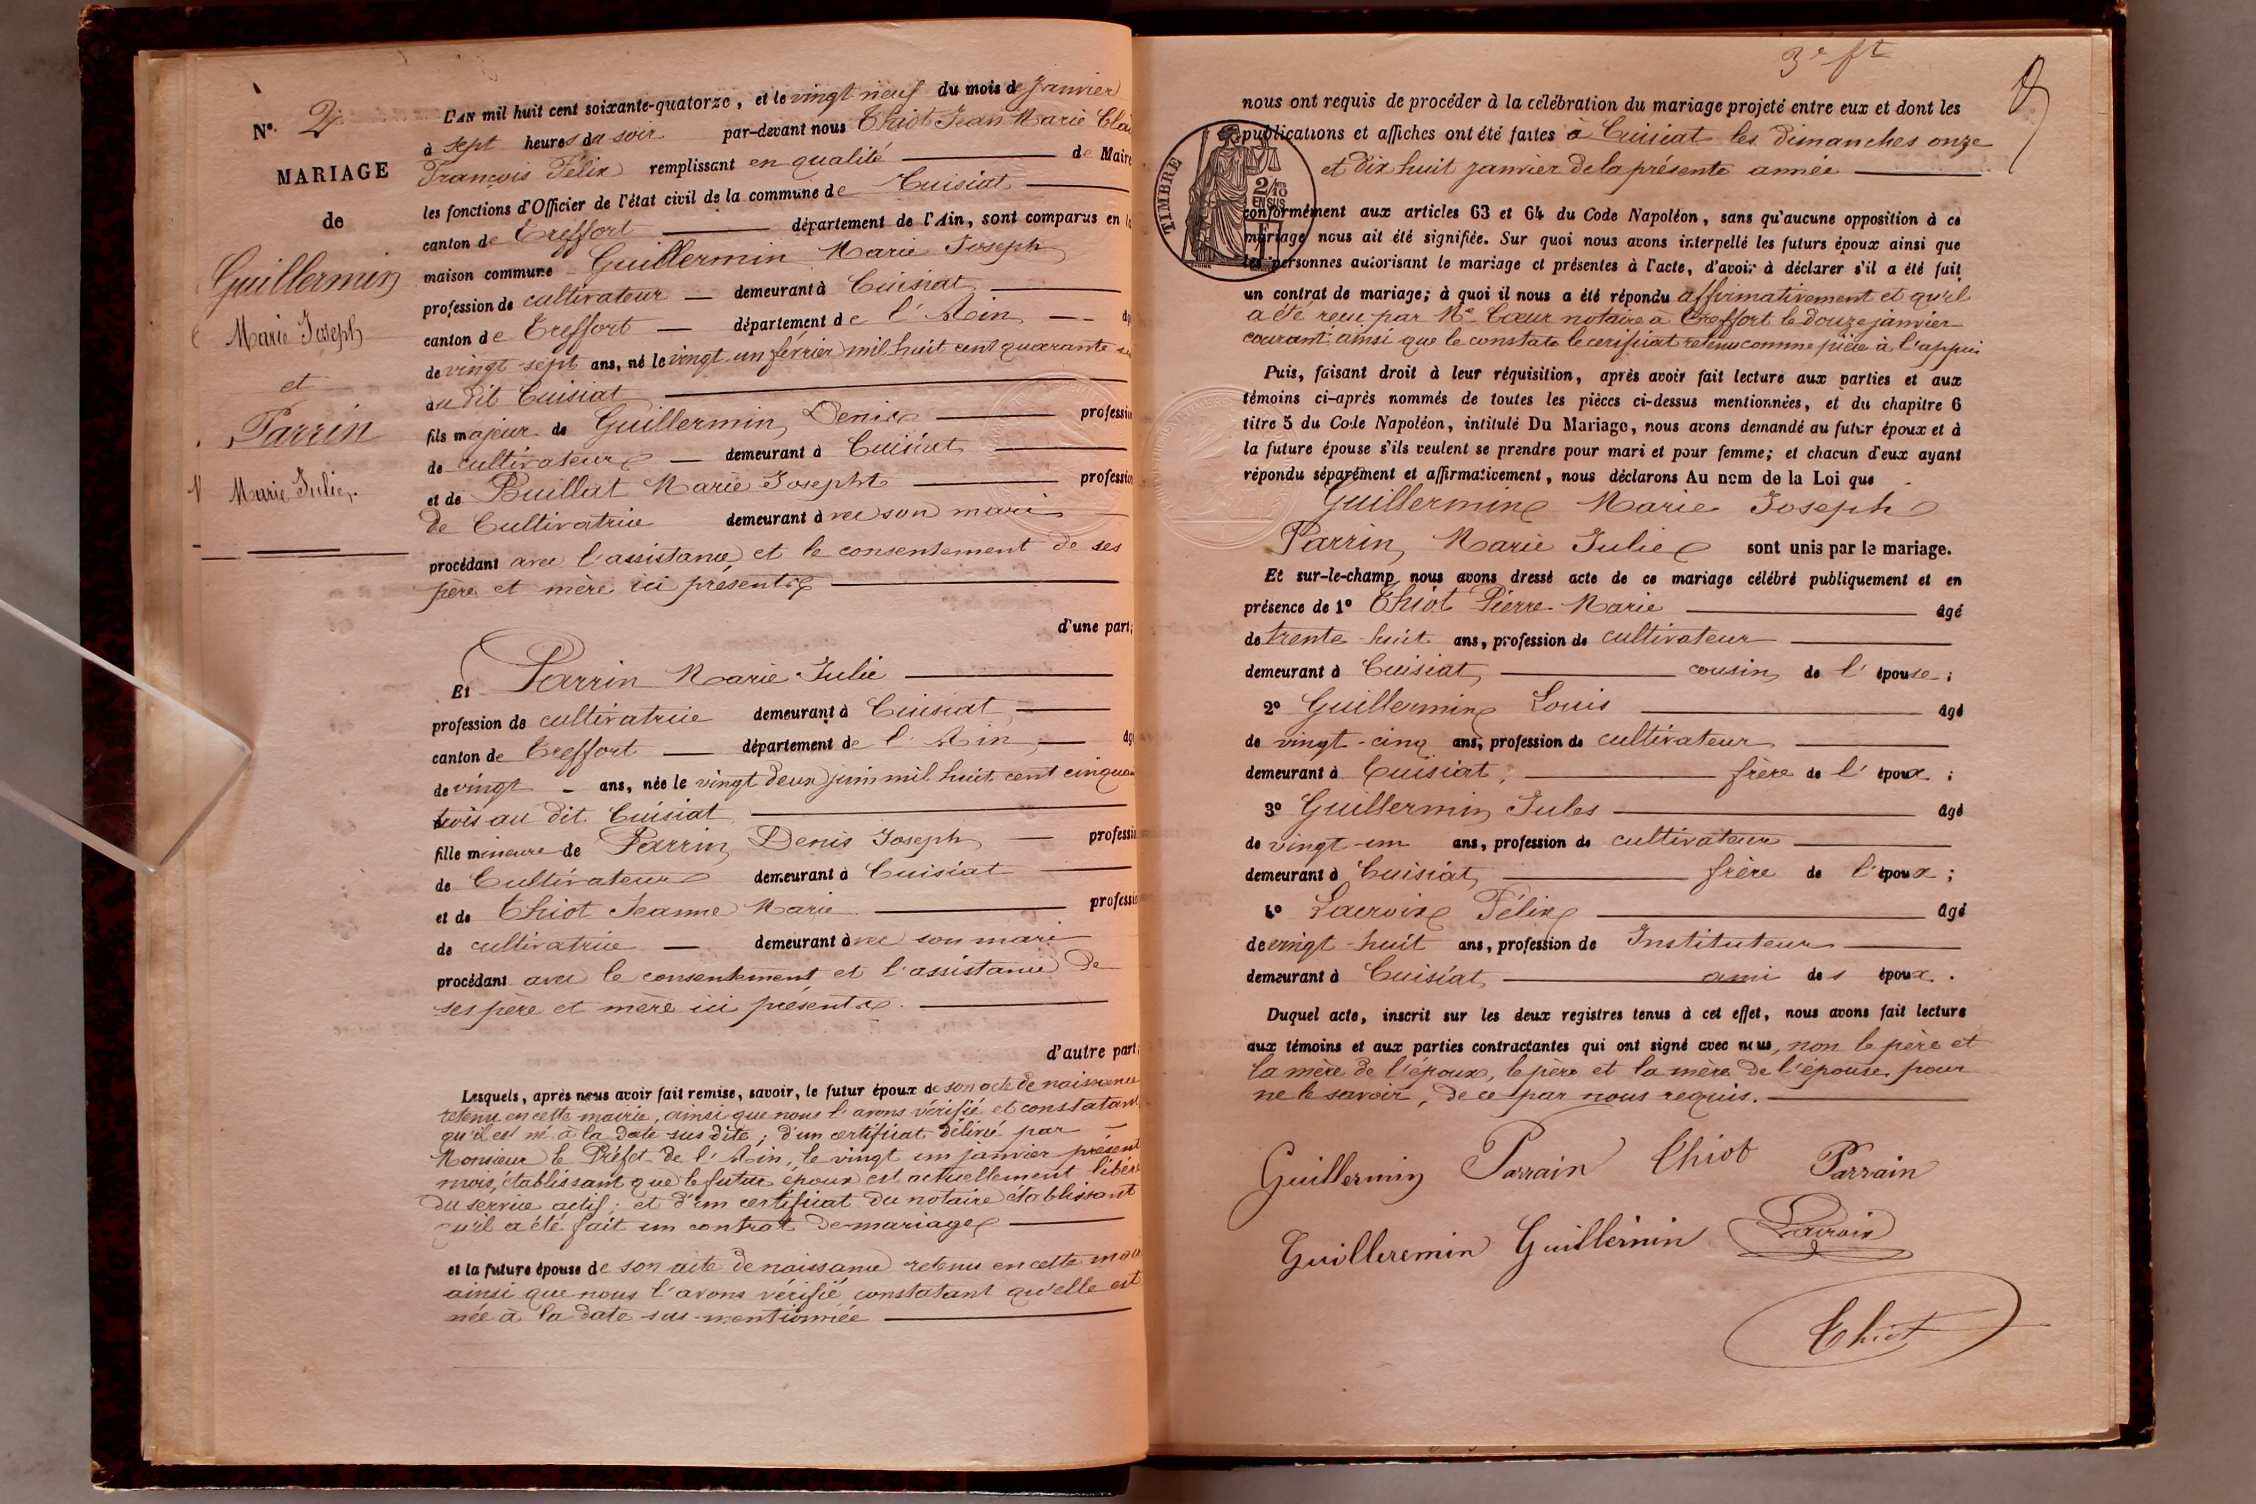 Nº. 2
MARIAGE
de
Guillermin
Marie Joseph
et
Parrin
Marie Julie.
L'AN mil huit cent soixante-quatorze, et le vingt neuf du mois de Janvier
à sept heures du soir par-devant nous Thiot Jean Marie
François Félix remplissant en qualité de Maire
les fonctions d'Officier de l'état civil de la commune de Cuisiat
canton de Treffort département de l'Ain, sont comparus en la
maison commune Guillermin Marie Joseph
profession de cultivateur demeurant à Cuisiat
canton de Treffort département de l'Ain
de vingt sept ans, né le vingt un février mil huit cent quarante
au dit Cuisiat
fils majeur de Guillermin Denis profession
de cultivateur demeurant à Cuisiat
et de Buillat Marie Josephte profession
de Cultivatrice demeurant avec son mari
procédant avec l'assistance et le consentement de ses
père et mère ici présents
d'une part;
Et Parrin Marie Julie
profession de cultivatrice demeurant à Cuisiat
canton de Treffort département de l'Ain
de vingt ans, née le vingt deux juin mil huit cent cinquan
trois au dit Cuisiat
fille mineure de Parrin Denis Joseph profession
de Cultivateur demeurant à Cuisiat
et de Thiot Jeanne Marie profession
de cultivatrice demeurant avec son mari
procédant avec le consentement et l'assistance de
ses père et mère ici présents.
d'autre part;
Lesquels, après nous avoir fait remise, savoir, le futur époux de son acte de naissance
retenu en cette mairie, ainsi que nous l'avons vérifié et constatant
qu'il est né à la date sus dite; d'un certificat délivré par
Monsieur le Préfet de l'Ain, le vingt un janvier présent
mois, établissant que le futur époux est actuellement libéré
du service actif; et d'un certificat du notaire établissant
qu'il a été fait un contrat de mariage
et la future épouse de son acte de naissance retenu en cette
ainsi que nous l'avons vérifié constatant qu'elle est
née à la date sus-mentionnée
3e ft
TIMBRE
2/10
EN SUS
nous ont requis de procéder à la célébration du mariage projeté entre eux et dont les
publications et affiches ont été faites à Cuisiat les dimanches onze
et dix huit janvier de la présente année
conformément aux articles 63 et 64 du Code Napoléon, sans qu'aucune opposition à ce
mariage nous ait été signifiée. Sur quoi nous avons interpellé les futurs époux ainsi que
les personnes autorisant le mariage et présentes à l'acte, d'avoir à déclarer s'il a été fait
un contrat de mariage; à quoi il nous a été répondu affirmativement et qu'il
a été reçu par Me Cœur notaire à Treffort le douze janvier
courant, ainsi que le constate le certificat retenu comme pièce à l'appui
Puis, faisant droit à leur réquisition, après avoir fait lecture aux parties et aux
témoins ci-après nommés de toutes les pièces ci-dessus mentionnées, et du chapitre 6
titre 5 du Code Napoléon, intitulé Du Mariage, nous avons demandé au futur époux et à
la future épouse s'ils veulent se prendre pour mari et pour femme; et chacun d'eux ayant
répondu séparément et affirmativement, nous déclarons Au nom de la Loi que
Guillermin Marie Joseph
Parrin, Marie Julie sont unis par le mariage.
Et sur-le-champ nous avons dressé acte de ce mariage célébré publiquement et en
présence de 1º Thiot Pierre-Marie âgé
de trente-huit ans, profession de cultivateur
demeurant à Cuisiat cousin de l'épouse;
2º Guillermin Louis âgé
de vingt-cinq ans, profession de cultivateur
demeurant à Cuisiat, frère de l'époux;
3º Guillermin Jules âgé
de vingt-un ans, profession de cultivateur
demeurant à Cuisiat frère de l'époux;
4º Lacroix Félix âgé
de vingt-huit ans, profession de Instituteur
demeurant à Cuisiat ami des époux.
Duquel acte, inscrit sur les deux registres tenus à cet effet, nous avons fait lecture
aux témoins et aux parties contractantes qui ont signé avec nous, non le père et
la mère de l'époux, le père et la mère de l'épouse pour
ne le savoir, de ce par nous requis.
Guillermin Parrain Thiot Parrain
Guilleremin Guillermin Lacroix
Thiot